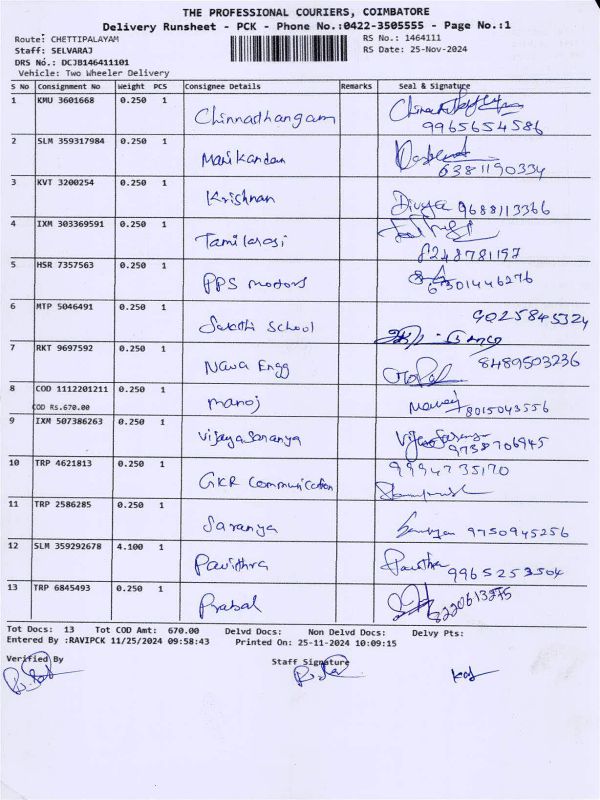 THE PROFESSIONAL COURIERS, COIMBATORE
Delivery Runsheet - PCK - Phone No.:0422-3505555 - Page No.:1
Route: CHETTIPALAYAM RS No.: 1464111
Staff: SELVARAJ RS Date: 25-Nov-2024
DRS No.: DCJB146411101
Vehicle: Two Wheeler Delivery
S No Consignment No Weight PCS Consignee Details Remarks Seal & Signature
1 KMU 3601668 0.250 1 Chinnasthangam
9965654586
2 SLM 359317984 0.250 1 Manikandan
6381190334
3 KVT 3200254 0.250 1 Krishnan Divya 9688113366
4 IXM 303369591 0.250 1 Tamilarasi
8248781197
5 HSR 7357563 0.250 1 PPS motors 6301446276
6 MTP 5046491 0.250 1 Sakthi School 9025845324
7 RKT 9697592 0.250 1 Nava Engg 8489503236
8 COD 1112201211 0.250 1 manoj Manoj 8015043556
COD Rs.670.00
9 IXM 507386263 0.250 1 VijayaSaranya
9738706945
10 TRP 4621813 0.250 1 GKR Communication 9994735170
11 TRP 2586285 0.250 1 Saranya 9750945256
12 SLM 359292678 4.100 1 Pavithra Pavithra 9965253504
13 TRP 6845493 0.250 1 Prabal 8220613275
Tot Docs: 13 Tot COD Amt: 670.00 Delvd Docs: Non Delvd Docs: Delvy Pts:
Entered By :RAVIPCK 11/25/2024 09:58:43 Printed On: 25-11-2024 10:09:15
Verified By Staff Signature